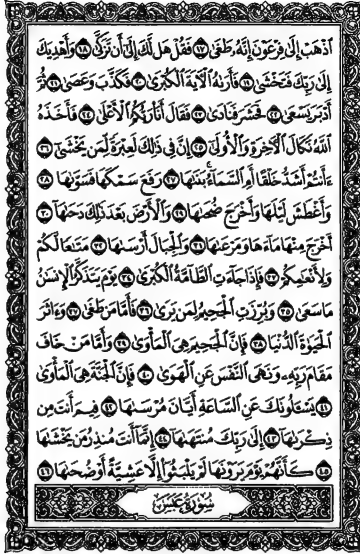 ٱذْهَبْ إِلَىٰ فِرْعَوْنَ إِنَّهُۥ طَغَىٰ ١٧ فَقُلْ هَل لَّكَ إِلَىٰٓ أَن تَزَكَّىٰ ١٨ وَأَهْدِيَكَ
إِلَىٰ رَبِّكَ فَتَخْشَىٰ ١٩ فَأَرَىٰهُ ٱلْأٓيَةَ ٱلْكُبْرَىٰ ٢٠ فَكَذَّبَ وَعَصَىٰ ٢١ ثُمَّ
أَدْبَرَ يَسْعَىٰ ٢٢ فَحَشَرَ فَنَادَىٰ ٢٣ فَقَالَ أَنَا۠ رَبُّكُمُ ٱلْأَعْلَىٰ ٢٤ فَأَخَذَهُ
ٱللَّهُ نَكَالَ ٱلْأٓخِرَةِ وَٱلْأُولَىٰٓ ٢٥ إِنَّ فِى ذَٰلِكَ لَعِبْرَةً لِّمَن يَخْشَىٰٓ ٢٦
ءَأَنتُمْ أَشَدُّ خَلْقًا أَمِ ٱلسَّمَآءُ ۚ بَنَىٰهَا ٢٧ رَفَعَ سَمْكَهَا فَسَوَّىٰهَا ٢٨
وَأَغْطَشَ لَيْلَهَا وَأَخْرَجَ ضُحَىٰهَا ٢٩ وَٱلْأَرْضَ بَعْدَ ذَٰلِكَ دَحَىٰهَآ ٣٠
أَخْرَجَ مِنْهَا مَآءَهَا وَمَرْعَىٰهَا ٣١ وَٱلْجِبَالَ أَرْسَىٰهَا ٣٢ مَتَٰعًا لَّكُمْ
وَلِأَنْعَٰمِكُمْ ٣٣ فَإِذَا جَآءَتِ ٱلطَّآمَّةُ ٱلْكُبْرَىٰ ٣٤ يَوْمَ يَتَذَكَّرُ ٱلْإِنسَٰنُ
مَا سَعَىٰ ٣٥ وَبُرِّزَتِ ٱلْجَحِيمُ لِمَن يَرَىٰ ٣٦ فَأَمَّا مَن طَغَىٰ ٣٧ وَءَاثَرَ
ٱلْحَيَوٰةَ ٱلدُّنْيَا ٣٨ فَإِنَّ ٱلْجَحِيمَ هِىَ ٱلْمَأْوَىٰ ٣٩ وَأَمَّا مَنْ خَافَ
مَقَامَ رَبِّهِۦ وَنَهَى ٱلنَّفْسَ عَنِ ٱلْهَوَىٰ ٤٠ فَإِنَّ ٱلْجَنَّةَ هِىَ ٱلْمَأْوَىٰ
٤١ يَسْـَٔلُونَكَ عَنِ ٱلسَّاعَةِ أَيَّانَ مُرْسَىٰهَا ٤٢ فِيمَ أَنتَ مِن
ذِكْرَىٰهَآ ٤٣ إِلَىٰ رَبِّكَ مُنتَهَىٰهَآ ٤٤ إِنَّمَآ أَنتَ مُنذِرُ مَن يَخْشَىٰهَا
٤٥ كَأَنَّهُمْ يَوْمَ يَرَوْنَهَا لَمْ يَلْبَثُوٓا۟ إِلَّا عَشِيَّةً أَوْ ضُحَىٰهَا ٤٦
سُورَةُ عَبَسَ